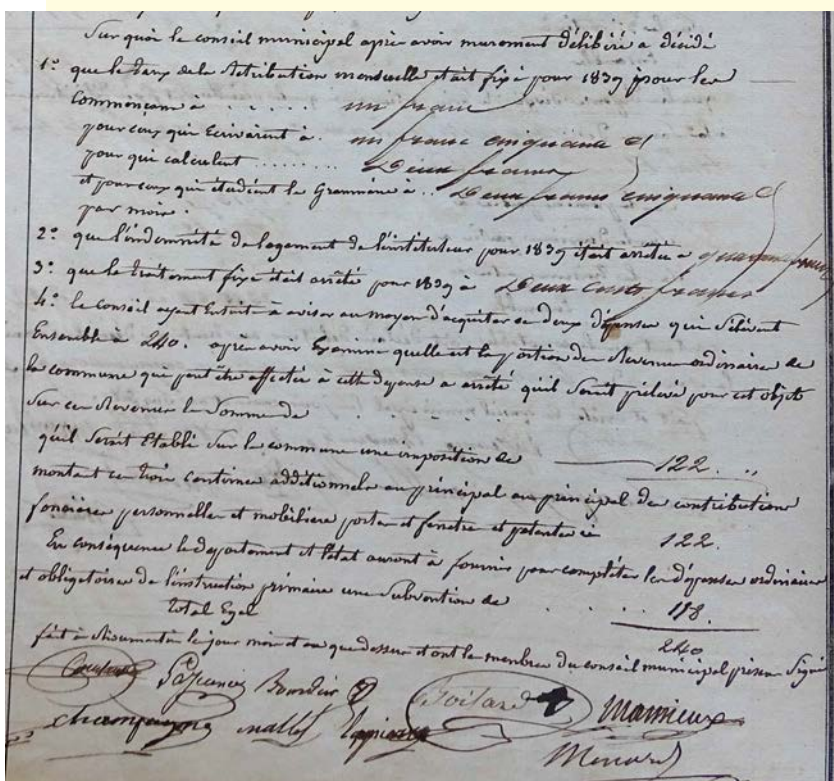 Sur quoi le conseil municipal après avoir murement délibéré a décidé
1.° que le taux de la Retribution mensuelle était fixé pour 1839 pour les
commençans à . . . . . . un franc
pour ceux qui Ecrivaient à . un franc cinquante c
pour qui calculent . . . . . . . . Deux francs
et pour ceux qui étudient la Grammaire à . . Deux francs cinquante c
par mois.
2.° que l'indemnité de logement de l'instituteur pour 1839 était arrêtée a quarante francs
3.° que le traitement fixe était arrêté pour 1839 à Deux cents francs
4.° le conseil ayant Ensuite à aviser au moyen d'acquiter ces deux dépenses qui s'élèvent
Ensemble à 240. après avoir Examiné quelle est la portion des Revenus ordinaires de
la commune qui peut être affectée à cette dépense a arrêté qu'il serait prélevé pour cet objet
sur ces Revenus la Somme de . . . .
qu'il serait Etabli sur la commune une imposition de 122. "
montant ces trois centimes additionnels au principal au principal des contributions
foncières personnelles et mobilière portes et fenetres et patentes ci 122.
En conséquence le departement et l'état auront à fournir pour compléter les dépenses ordinaires
et obligatoires de l'instruction primaire une Subvention de . . . . . 118.
Total Egal 240
fait à le jour mois et an que dessus et ont les membres du conseil municipal présens Signé
Bourdier Goilard Mamieux
Champagne mallet
Menard